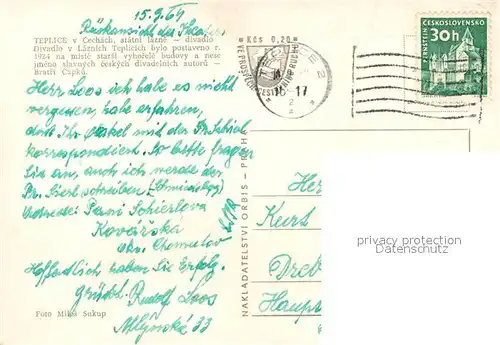 15.9.69
Rückansicht des Theaters
TEPLICE v Čechách, státní lázně — divadlo
Divadlo v Lázních Teplicích bylo postaveno r.
1924 na místě starší vyhořelé budovy a nese
jméno slavných českých divadelních autorů —
Bratří Čapků.
Kčs 0,20
ČESKOSLOVENSKO
30h
PERNŠTEJN
16 17
2
Herr Loos ich habe es nicht
vergessen, habe erfahren,
dass Ihr Onkel mit der Fr. Schiel
korrespondiert. So bitte fragen
Sie an, auch ich werde der
Fr. Sierl schreiben. (Schmiedeberg)
Adresse: Paní Schierlova
Kovářská
okr. Chomutov
USSR
Hoffentlich haben Sie Erfolg.
Grüßt Rudolf Loos
Mlýnská 33
Foto Miloš Sukup
NAKLADATELSTVÍ ORBIS - PRAHA
Her
Kurt
Dreb
Haupt
privacy protection
Datenschutz